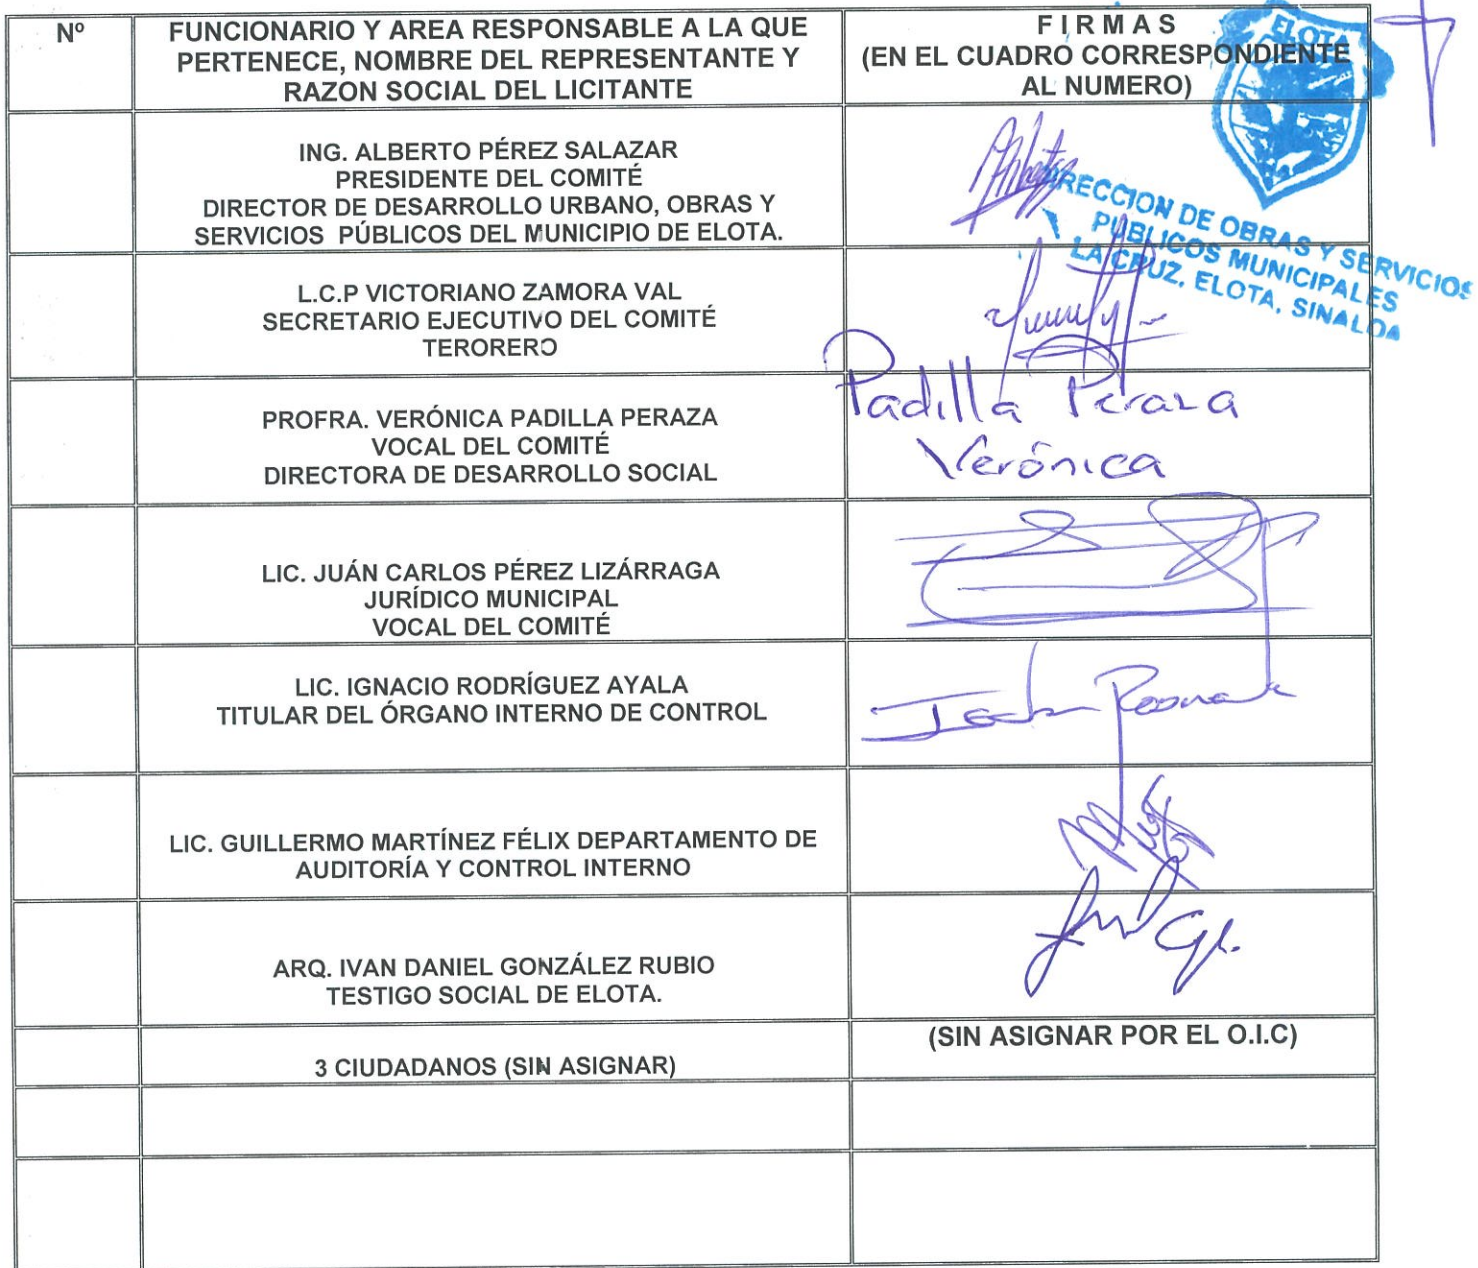 Nº
FUNCIONARIO Y AREA RESPONSABLE A LA QUE
PERTENECE, NOMBRE DEL REPRESENTANTE Y
RAZON SOCIAL DEL LICITANTE
F I R M A S
(EN EL CUADRO CORRESPONDIENTE
AL NUMERO)
ELOTA
ING. ALBERTO PÉREZ SALAZAR
PRESIDENTE DEL COMITÉ
DIRECTOR DE DESARROLLO URBANO, OBRAS Y
SERVICIOS PÚBLICOS DEL MUNICIPIO DE ELOTA.
DIRECCION DE OBRAS Y SERVICIOS
PUBLICOS MUNICIPALES
LA CRUZ, ELOTA, SINALOA
L.C.P VICTORIANO ZAMORA VAL
SECRETARIO EJECUTIVO DEL COMITÉ
TERORERO
PROFRA. VERÓNICA PADILLA PERAZA
VOCAL DEL COMITÉ
DIRECTORA DE DESARROLLO SOCIAL
Padilla Peraza
Verónica
LIC. JUÁN CARLOS PÉREZ LIZÁRRAGA
JURÍDICO MUNICIPAL
VOCAL DEL COMITÉ
LIC. IGNACIO RODRÍGUEZ AYALA
TITULAR DEL ÓRGANO INTERNO DE CONTROL
LIC. GUILLERMO MARTÍNEZ FÉLIX DEPARTAMENTO DE
AUDITORÍA Y CONTROL INTERNO
ARQ. IVAN DANIEL GONZÁLEZ RUBIO
TESTIGO SOCIAL DE ELOTA.
3 CIUDADANOS (SIN ASIGNAR)
(SIN ASIGNAR POR EL O.I.C)